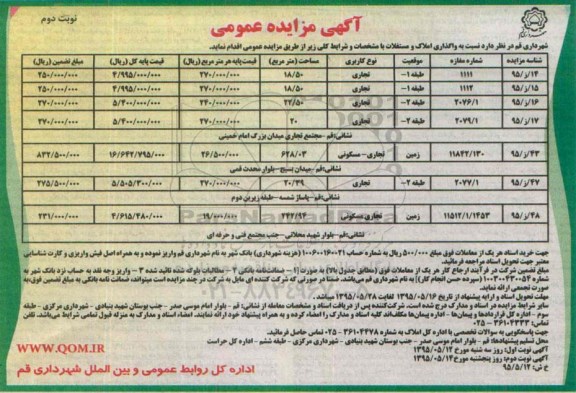 نوبت دوم
آگهی مزایده عمومی
شهرداری قم در نظر دارد نسبت به واگذاری املاک و مستغلات با مشخصات و شرایط کلی زیر از طریق مزایده عمومی اقدام نماید.
شناسه مزایده شماره مغازه موقعیت نوع کاربری مساحت (متر مربع) قیمت پایه هر متر مربع (ریال) قیمت پایه کل (ریال) مبلغ تضمین (ریال)
۹۵/ز/۱۴ ۱۱۱۱ طبقه ۱- تجاری ۱۸/۵۰ ۲۷۰/۰۰۰/۰۰۰ ۴/۹۹۵/۰۰۰/۰۰۰ ۲۵۰/۰۰۰/۰۰۰
۹۵/ز/۱۵ ۱۱۱۲ طبقه ۱- تجاری ۱۸/۵۰ ۲۷۰/۰۰۰/۰۰۰ ۴/۹۹۵/۰۰۰/۰۰۰ ۲۵۰/۰۰۰/۰۰۰
۹۵/ز/۱۶ ۲۰۷۶/۱ طبقه ۲- تجاری ۲۲/۵۰ ۲۴۰/۰۰۰/۰۰۰ ۵/۴۰۰/۰۰۰/۰۰۰ ۲۷۰/۰۰۰/۰۰۰
۹۵/ز/۱۷ ۲۰۷۹/۱ طبقه ۲- تجاری ۲۰ ۲۷۰/۰۰۰/۰۰۰ ۵/۴۰۰/۰۰۰/۰۰۰ ۲۷۰/۰۰۰/۰۰۰
نشانی: قم -مجتمع تجاری میدان بزرگ امام خمینی
۹۵/ز/۴۳ ۱۱۸۴۲/۱۳۰ زمین تجاری- مسکونی ۶۲۸/۰۳ ۲۶/۵۰۰/۰۰۰ ۱۶/۶۴۲/۷۹۵/۰۰۰ ۸۳۲/۵۰۰/۰۰۰
نشانی: قم -میدان بسیج -بلوار محدث قمی
۹۵/ز/۴۷ ۲۰۷۷/۱ طبقه ۲- تجاری ۲۰/۳۹ ۲۷۰/۰۰۰/۰۰۰ ۵/۵۰۵/۳۰۰/۰۰۰ ۲۷۵/۵۰۰/۰۰۰
نشانی: قم -پاساژ شمسه -طبقه زیرین دوم
۹۵/ز/۴۸ ۱۱۵۱۲/۱/۱۴۵۳ زمین تجاری مسکونی ۲۴۲/۹۴ ۱۹/۰۰۰/۰۰۰ ۴/۶۱۵/۴۸۰/۰۰۰ ۲۳۱/۰۰۰/۰۰۰
نشانی: قم -بلوار شهید محلاتی- جنب مجتمع فنی و حرفه ای
جهت خرید اسناد هر یک از معاملات فوق مبلغ ۵۰۰/۰۰۰ ریال به شماره حساب ۱۰۰۶۰۰۱۶۰۰۲۱ (هزینه شهرداری) بانک شهر به نام شهرداری قم واریز نموده و به همراه اصل فیش واریزی و کارت شناسایی
معتبر جهت تحویل اسناد مراجعه فرمائید.
مبلغ تضمین شرکت در فرآیند ارجاع کار هر یک از معاملات فوق (مطابق جدول بالا) به صورت (۱ - ضمانت‌نامه بانکی ۲ - مطالبات بلوکه شده تائید شده ۳ - واریز وجه نقد به حساب نزد بانک شهر به
شماره ۱۰۰۳۰۰۴۳۰۰۵۴ (سپرده حسن انجام کار)) به نام شهرداری قم می‌باشد.
مهلت تحویل اسناد و ارایه پیشنهاد از تاریخ ۱۳۹۵/۰۵/۱۶ لغایت ۱۳۹۵/۰۵/۲۸ میباشد.
سایر شرایط مزایده در اسناد و مدارک درج شده است. شرکت‌کننده پس از دریافت اسناد و مشخصات معامله از نشانی: قم - بلوار امام موسی صدر - جنب بوستان شهید بنیادی - شهرداری مرکزی - طبقه
سوم - اداره کل قراردادها و پیمان‌ها - اداره پیمان‌ها مکلف‌اند کلیه اسناد و مدارک را امضاء کرده و به همراه پیشنهاد خود ارائه نمایند. امضاء اسناد و مدارک به منزله قبول تمامی شرایط می‌باشد. تلفن
تماس: ۳۶۱۰۴۳۳۳ - ۰۲۵
جهت پاسخگویی به سوالات تخصصی با اداره کل املاک به شماره ۳۶۱۰۴۴۷۸ - ۰۲۵ تماس حاصل فرمائید.
محل تسلیم پیشنهادها: قم - بلوار امام موسی صدر - جنب بوستان شهید بنیادی - شهرداری مرکزی - طبقه ششم - اداره کل حراست
آگهی نوبت اول: روز سه شنبه مورخ ۱۳۹۵/۰۵/۱۲
آگهی نوبت دوم: روز پنجشنبه مورخ ۱۳۹۵/۰۵/۱۴
خ ش: ۹۵/۵/۱۲
WWW.QOM.IR
اداره کل روابط عمومی و بین الملل شهرداری قم